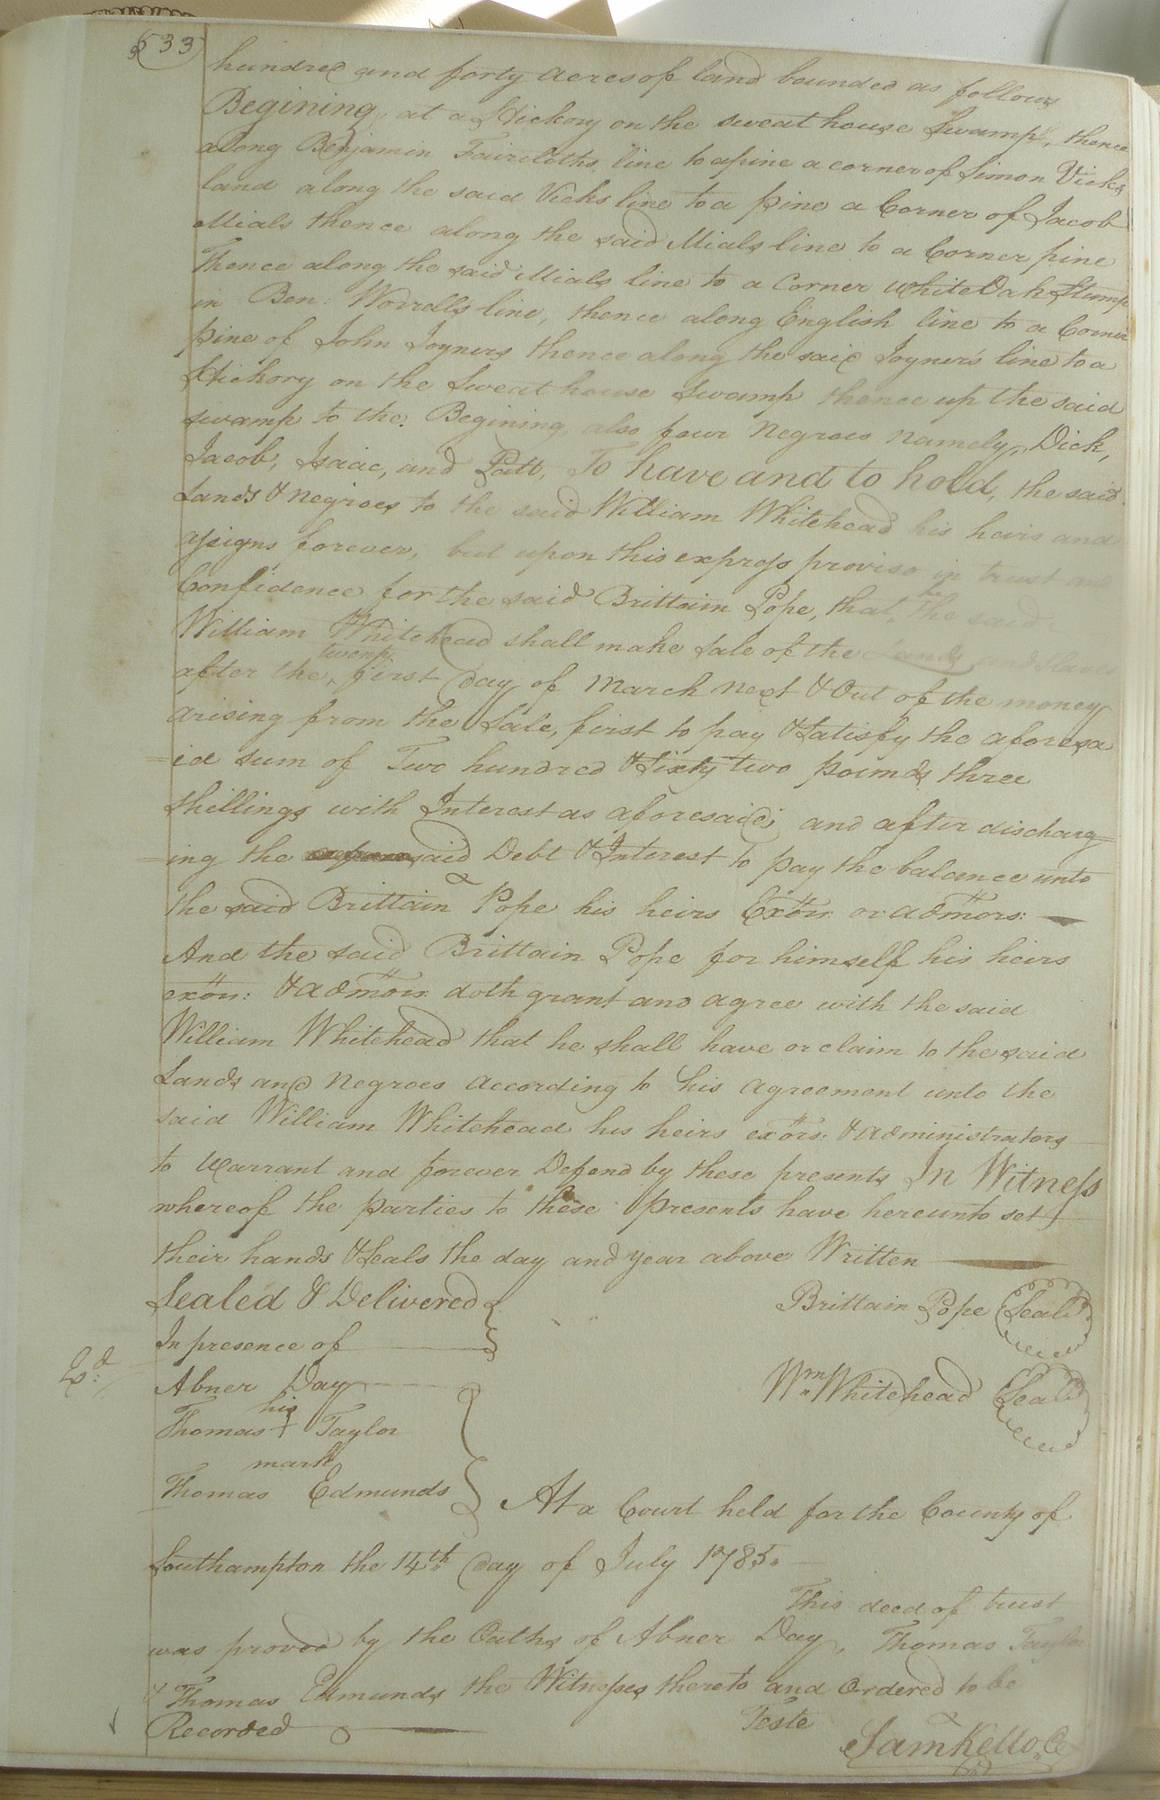 533
hundred and forty acres of land bounded as follows
Begining, at a Hickory on the sweat house Swamp, thence
along Benjamin Faircloths line to a pine a corner of Simon Vicks
land along the said Vicks line to a pine a Corner of Jacob
Mials thence along the said Mials line to a Corner pine
Thence along the said Mials line to a Corner white Oak Stump
in Ben: Worrells line, thence along English line to a Corner
pine of John Joyners thence along the said Joyner's line to a
Hickory on the Sweat house Swamp thence up the said
swamp to the Begining, also four Negroes namely, Dick,
Jacob, Isaac, and Patt, To have and to hold, the said
Lands & negroes to the said William Whitehead his heirs and
assigns forever, but upon this express proviso in trust and
Confidence for the said Brittain Pope, that he the said
William Whitehead shall make Sale of the Lands and Slaves
after the twenty first day of March next & Out of the money
arising from the Sale, first to pay & Satisfy the aforesa
=id sum of Two hundred & Sixty two pounds three
Shillings with Interest as aforesaid; and after discharg=
=ing the said Debt & Interest to pay the balance unto
the said Brittain Pope his heirs Exōrs or admōrs:
And the said Brittain Pope for himself his heirs
exōrs: & admōrs doth grant and agree with the said
William Whitehead that he shall have or claim to the said
Lands and Negroes according to his agreement unto the
said William Whitehead his heirs exōrs: & administrators
to Warrant and forever Defend by these presents In Witness
whereof the parties to these presents have hereunto set
their hands & Seals the day and year above Written
Sealed & Delivered
In presence of
Brittain Pope Seal
Ed:
Abner Day
Wm Whitehead Seal
his
Thomas + Taylor
mark
Thomas Edmunds
At a Court held for the County of
Southampton the 14th day of July 1785.
This deed of trust
was proved by the Oaths of Abner Day, Thomas Taylor
& Thomas Edmunds the Witnesses thereto and Ordered to be
Recorded
Teste
Sam Kello, C